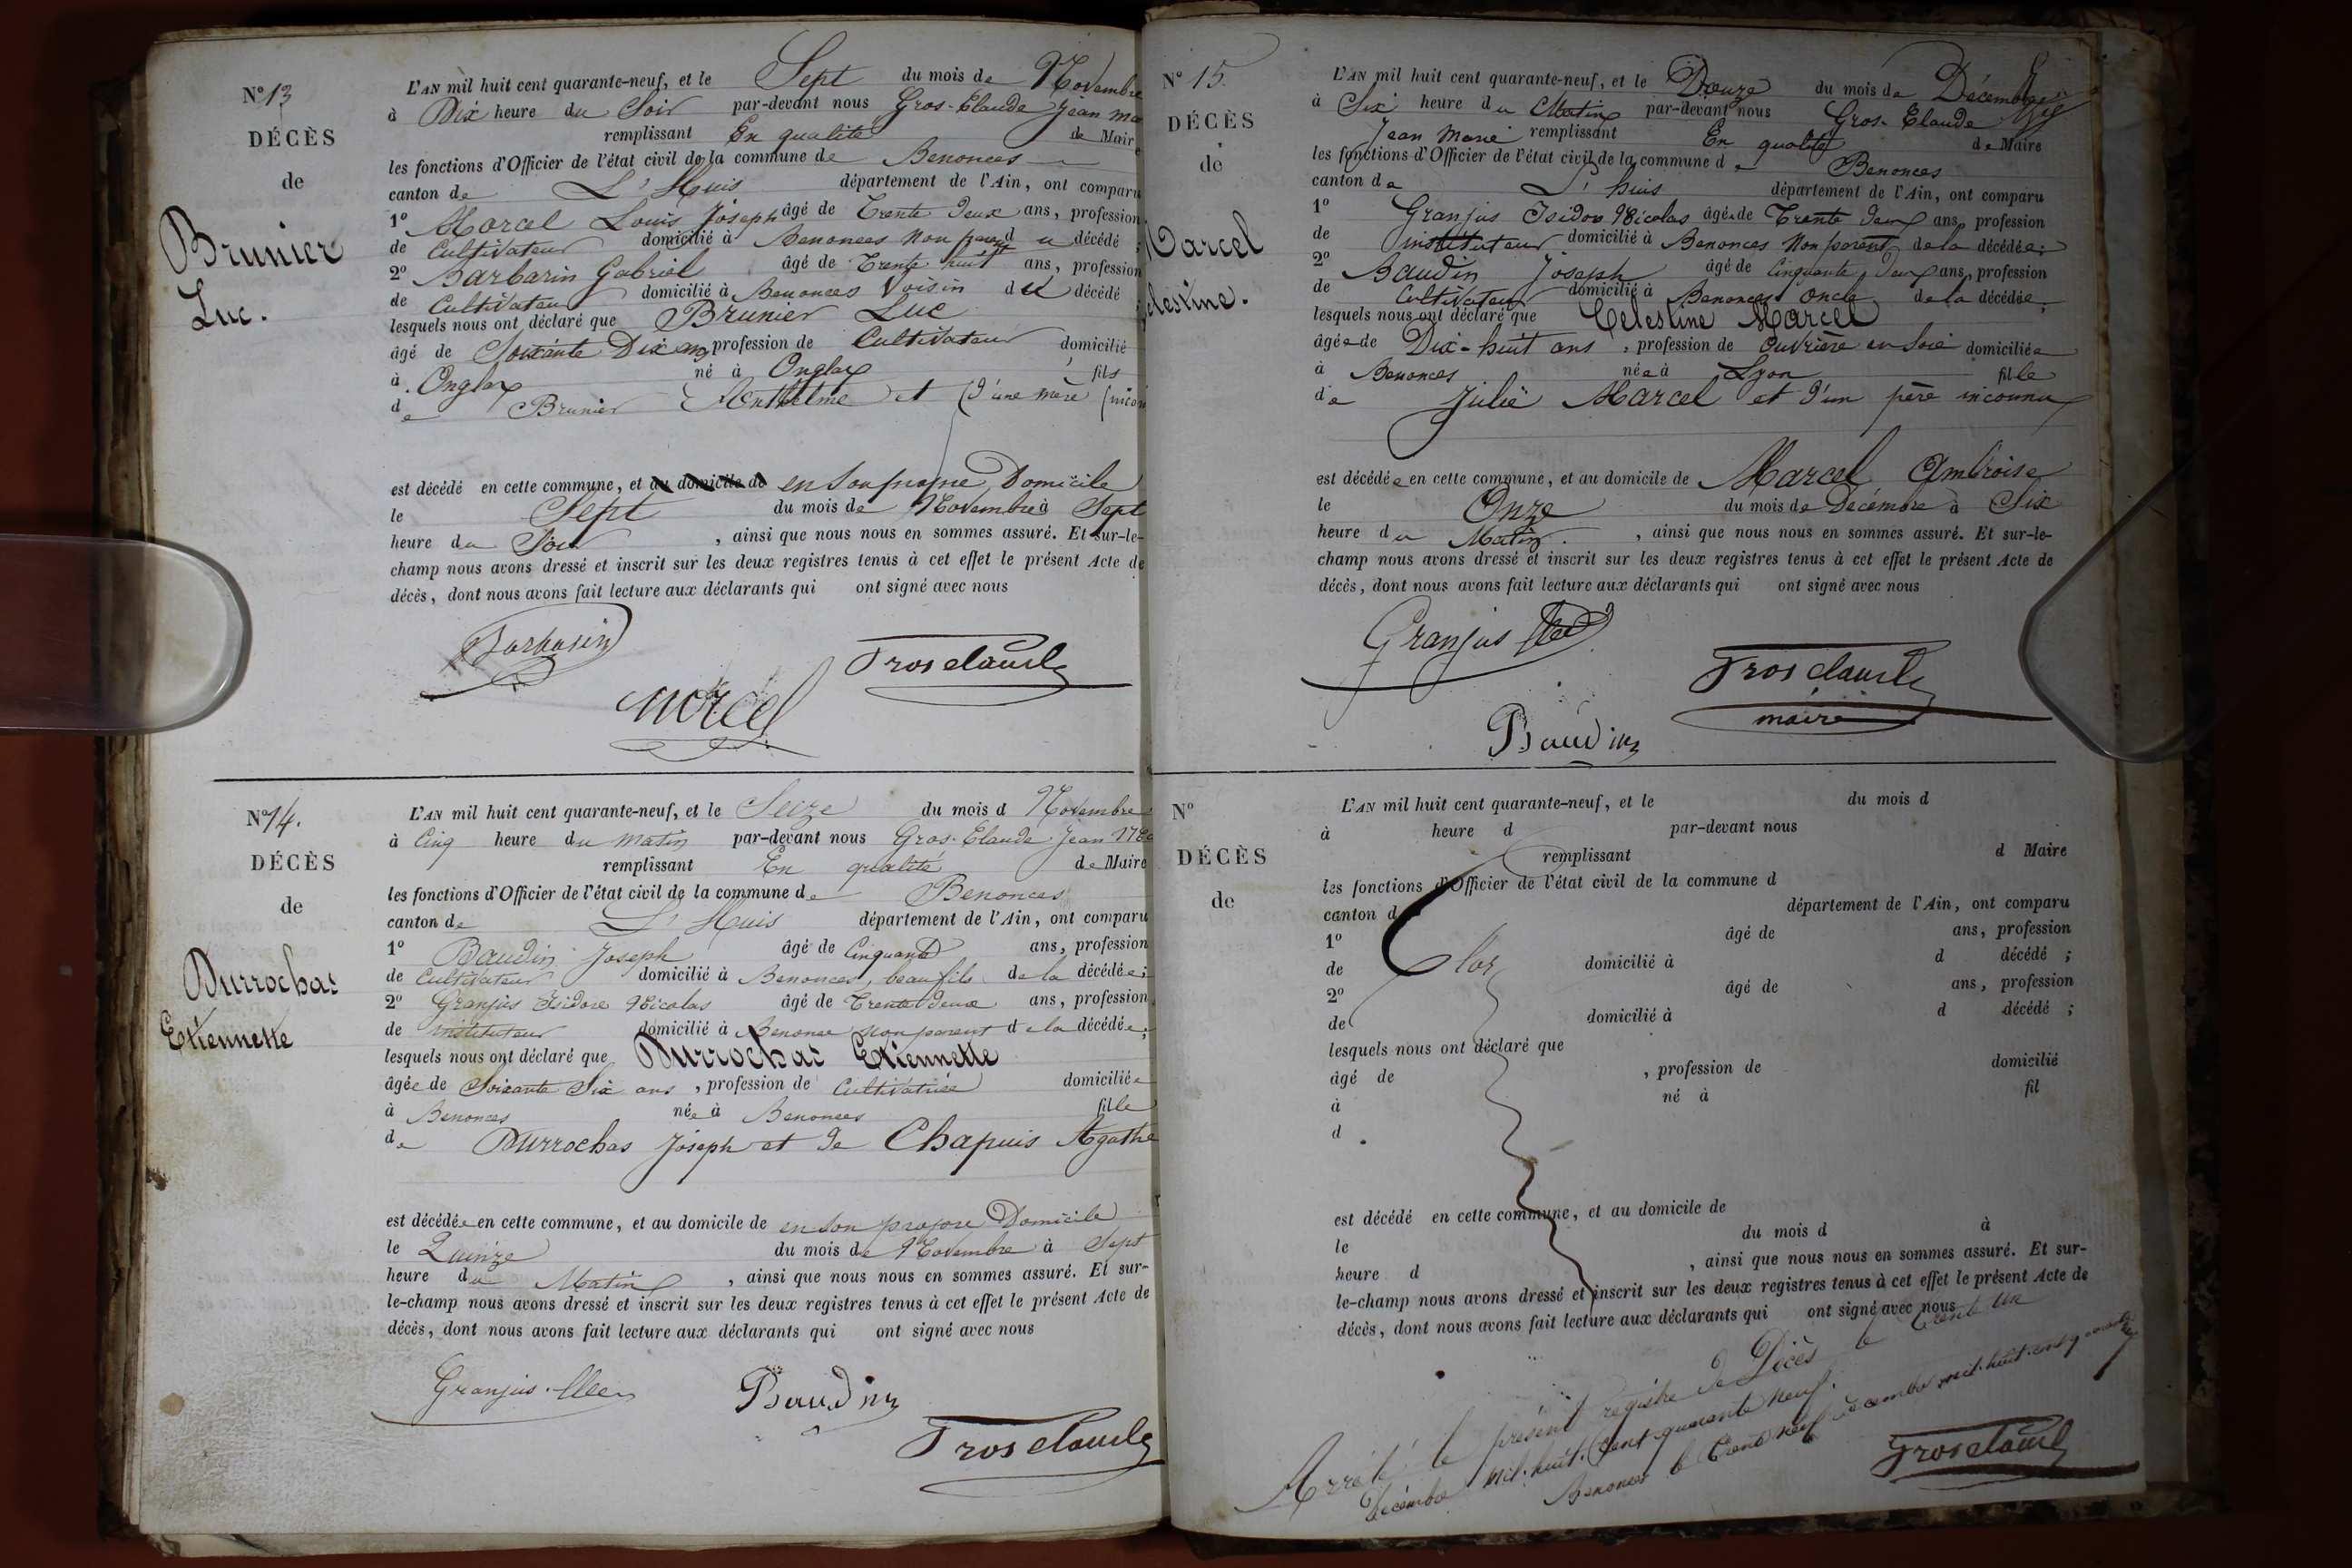 N° 13
DÉCÈS
de
Brunier
Luc.
L'AN mil huit cent quarante-neuf, et le Sept du mois de Novembre
à Dix heure du Soir par-devant nous Gros-Claude Jean Ma
remplissant En qualité de Maire
les fonctions d'Officier de l'état civil de la commune de Benonces
canton de L'Huis département de l'Ain, ont comparu
1° Marcel Louis Joseph âgé de Trente deux ans, profession
de Cultivateur domicilié à Benonces non parent du décédé ;
2° Barbarin Gabriel âgé de Trente huit ans, profession
de Cultivateur domicilié à Benonces Voisin du décédé
lesquels nous ont déclaré que Brunier Luc
âgé de Soixante Dix ans profession de Cultivateur domicilié
à Onglax né à Onglax fils
de Brunier Anthelme et d'une mère incon
est décédé en cette commune, et au domicile de en Son propre Domicile
le Sept du mois de Novembre à Sept
heure du Soir , ainsi que nous nous en sommes assuré. Et sur-le-
champ nous avons dressé et inscrit sur les deux registres tenus à cet effet le présent Acte de
décès, dont nous avons fait lecture aux déclarants qui ont signé avec nous
Barbarin
Grosclaude
Morcel
N° 14.
DÉCÈS
de
Durrochas
Etiennette
L'AN mil huit cent quarante-neuf, et le Seize du mois d Novembre
à Cinq heure du matin par-devant nous Gros-Claude Jean Ma
remplissant En qualité de Maire
les fonctions d'Officier de l'état civil de la commune de Benonces
canton de L'Huis département de l'Ain, ont comparu
1° Baudin Joseph âgé de Cinquante ans, profession
de Cultivateur domicilié à Benonces, beau fils de la décédée ;
2° Granjus Isidore Nicolas âgé de Trente deux ans, profession
de instituteur domicilié à Benonce non parent de la décédée ;
lesquels nous ont déclaré que Durrochas Etiennette
âgée de Soixante Six ans , profession de Cultivatrice domiciliée
à Benonces née à Benonces fille
de Durrochas Joseph et de Chapuis Agathe
est décédée en cette commune, et au domicile de en Son propre Domicile
le Quinze du mois de Novembre à Sept
heure du Matin , ainsi que nous nous en sommes assuré. Et sur-
le-champ nous avons dressé et inscrit sur les deux registres tenus à cet effet le présent Acte de
décès, dont nous avons fait lecture aux déclarants qui ont signé avec nous
Granjus
Baudin
Grosclaude
N° 15.
DÉCÈS
de
Marcel
Celestine.
L'AN mil huit cent quarante-neuf, et le Douze du mois de Décembre
à Six heure du Matin par-devant nous Gros-Claude
Jean Marie remplissant En qualité de Maire
les fonctions d'Officier de l'état civil de la commune de Benonces
canton de L'huis département de l'Ain, ont comparu
1° Granjus Isidor Nicolas âgé de Trente deux ans profession
de instituteur domicilié à Benonces Non parent de la décédée ;
2° Baudin Joseph âgé de Cinquante Deux ans, profession
de Cultivateur domicilié à Benonces oncle de la décédée ;
lesquels nous ont déclaré que Celestine Marcel
âgée de Dix-huit ans , profession de Ouvrière en Soie domiciliée
à Benonces née à Lyon fille
de Julie Marcel et d'un père inconnu
est décédée en cette commune, et au domicile de Marcel Ambroise
le Onze du mois de Décembre à Six
heure du Matin. , ainsi que nous nous en sommes assuré. Et sur-le-
champ nous avons dressé et inscrit sur les deux registres tenus à cet effet le présent Acte de
décès, dont nous avons fait lecture aux déclarants qui ont signé avec nous
Granjus
Grosclaude
maire
Baudin
N°
DÉCÈS
de
L'AN mil huit cent quarante-neuf, et le du mois d
à heure d par-devant nous
remplissant d Maire
les fonctions d'Officier de l'état civil de la commune d
canton d département de l'Ain, ont comparu
1° âgé de ans, profession
de Clos domicilié à d décédé ;
2° âgé de ans, profession
de domicilié à d décédé ;
lesquels nous ont déclaré que
âgé de , profession de domicilié
à né à fil
d
est décédé en cette commune, et au domicile de
le du mois d à
heure d , ainsi que nous nous en sommes assuré. Et sur-
le-champ nous avons dressé et inscrit sur les deux registres tenus à cet effet le présent Acte de
décès, dont nous avons fait lecture aux déclarants qui ont signé avec nous
Arrêté le présent registre de Décès le trente un
Décembre mil-huit-Cent quarante neuf.
Benonces le décembre mil-huit-cent quarante
Grosclaude